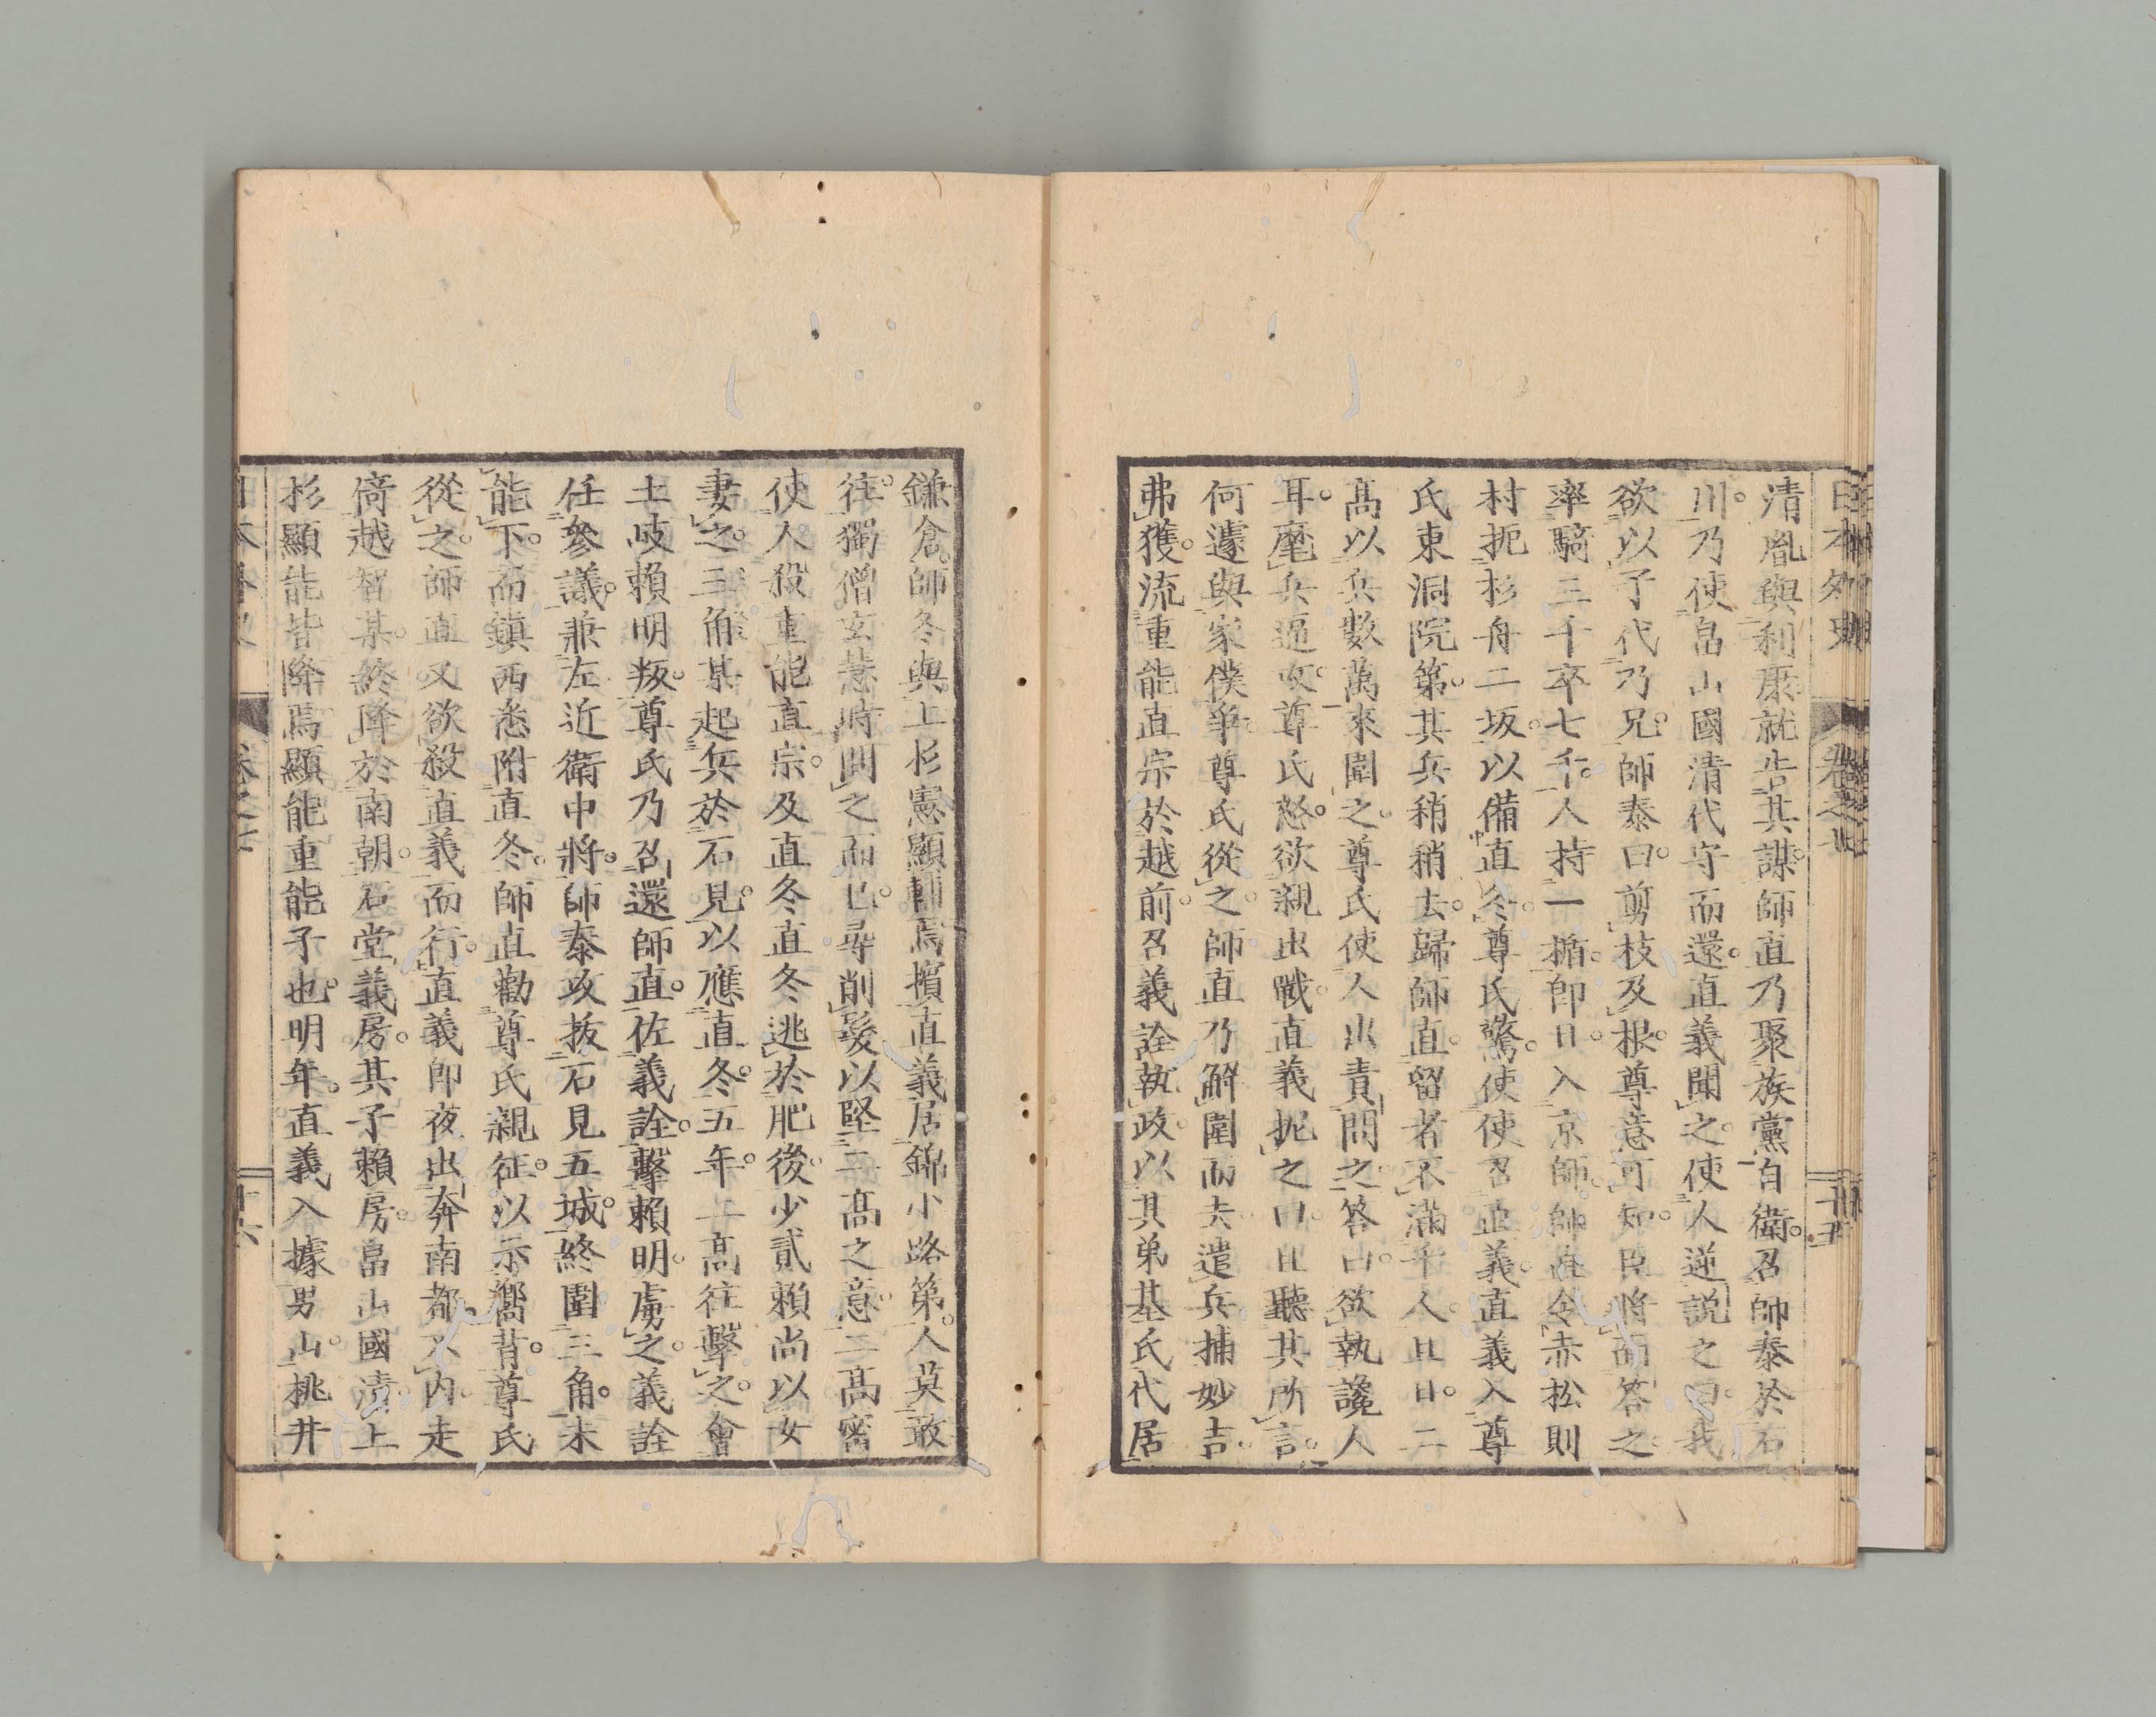 清胤與利康就告其謀。師直乃聚族黨自衛。召師泰於石
川。乃使畠山國清代守而還。直義聞之。使人逆説之曰。我
欲以子代乃兄。師泰曰。剪枝及根。尊意可知。臣將面答之。
率騎三千卒七千。人持一楯。即日入京師。師直令赤松則
村扼杉舟二坂。以備直冬。尊氏驚。使使召直義。直義入尊
氏東洞院第。其兵稍稍去歸師直。留者不滿千人。旦日。二
高以兵數萬來圍之。尊氏使人出責問之。答曰。欲執讒人
耳。麾兵逼攻。尊氏怒。欲親出戰。直義扼之曰。且聽其所言。
何遽與家僕爭。尊氏從之。師直乃解圍而去。遣兵捕妙吉。
弗獲。流重能直宗於越前。召義詮執政。以其弟基氏代居
鎌倉。師冬與上杉憲顯輔焉。擯直義居錦小路第。人莫敢
往。獨僧玄慧時問之而已。尋削髮以堅二高之意。二高密
使人殺重能直宗。及直冬。直冬逃於肥後。少貳賴尚以女
妻之。三角某起兵於石見。以應直冬。五年。二高往擊之。會
土岐賴明叛。尊氏乃召還師直。佐義詮。擊賴明。虜之。義詮
任參議。兼左近衛中將。師泰攻拔石見五城。終圍三角。未
能下。而鎭西悉附直冬。師直勸尊氏親征。以示嚮背。尊氏
從之。師直又欲殺直義而行。直義即夜出奔南都。不内。走
倚越智某。終降於南朝。石堂義房。其子賴房。畠山國清。上
杉顯能皆降焉。顯能重能子也。明年。直義入據男山。桃井